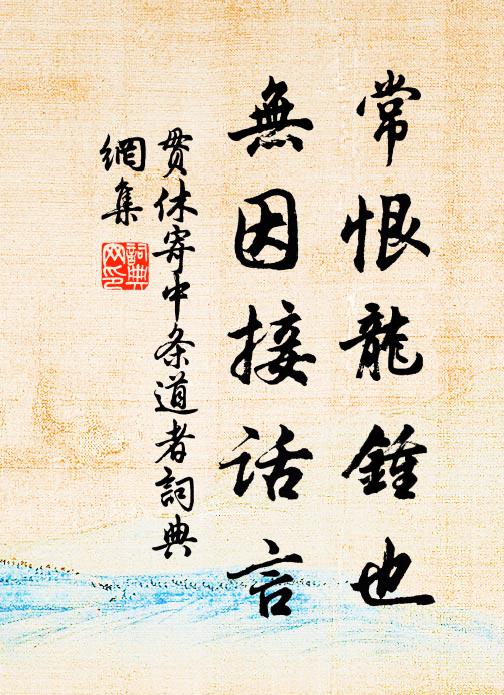 常恨龍鍾也
無因接话言
贯休寄中条道者詞典
網集
詞典網印